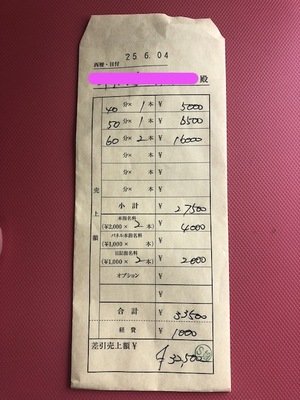 西暦・日付 25.6.04
殿
40 分× 1 本 ¥ 5000
50 分× 1 本 ¥ 6500
60 分× 2 本 ¥ 16000
分× 本 ¥
分× 本 ¥
分× 本 ¥
売上額
小計 ¥ 27500
本指名料 (¥2,000× 2 本) ¥ 4000
パネル本指名料 (¥1,000× 本) ¥
(¥1,000× 2 本) ¥ 2000
オプション ¥
¥
合計 ¥ 33500
経費 ¥ 1000
差引売上額 ¥ 32,500